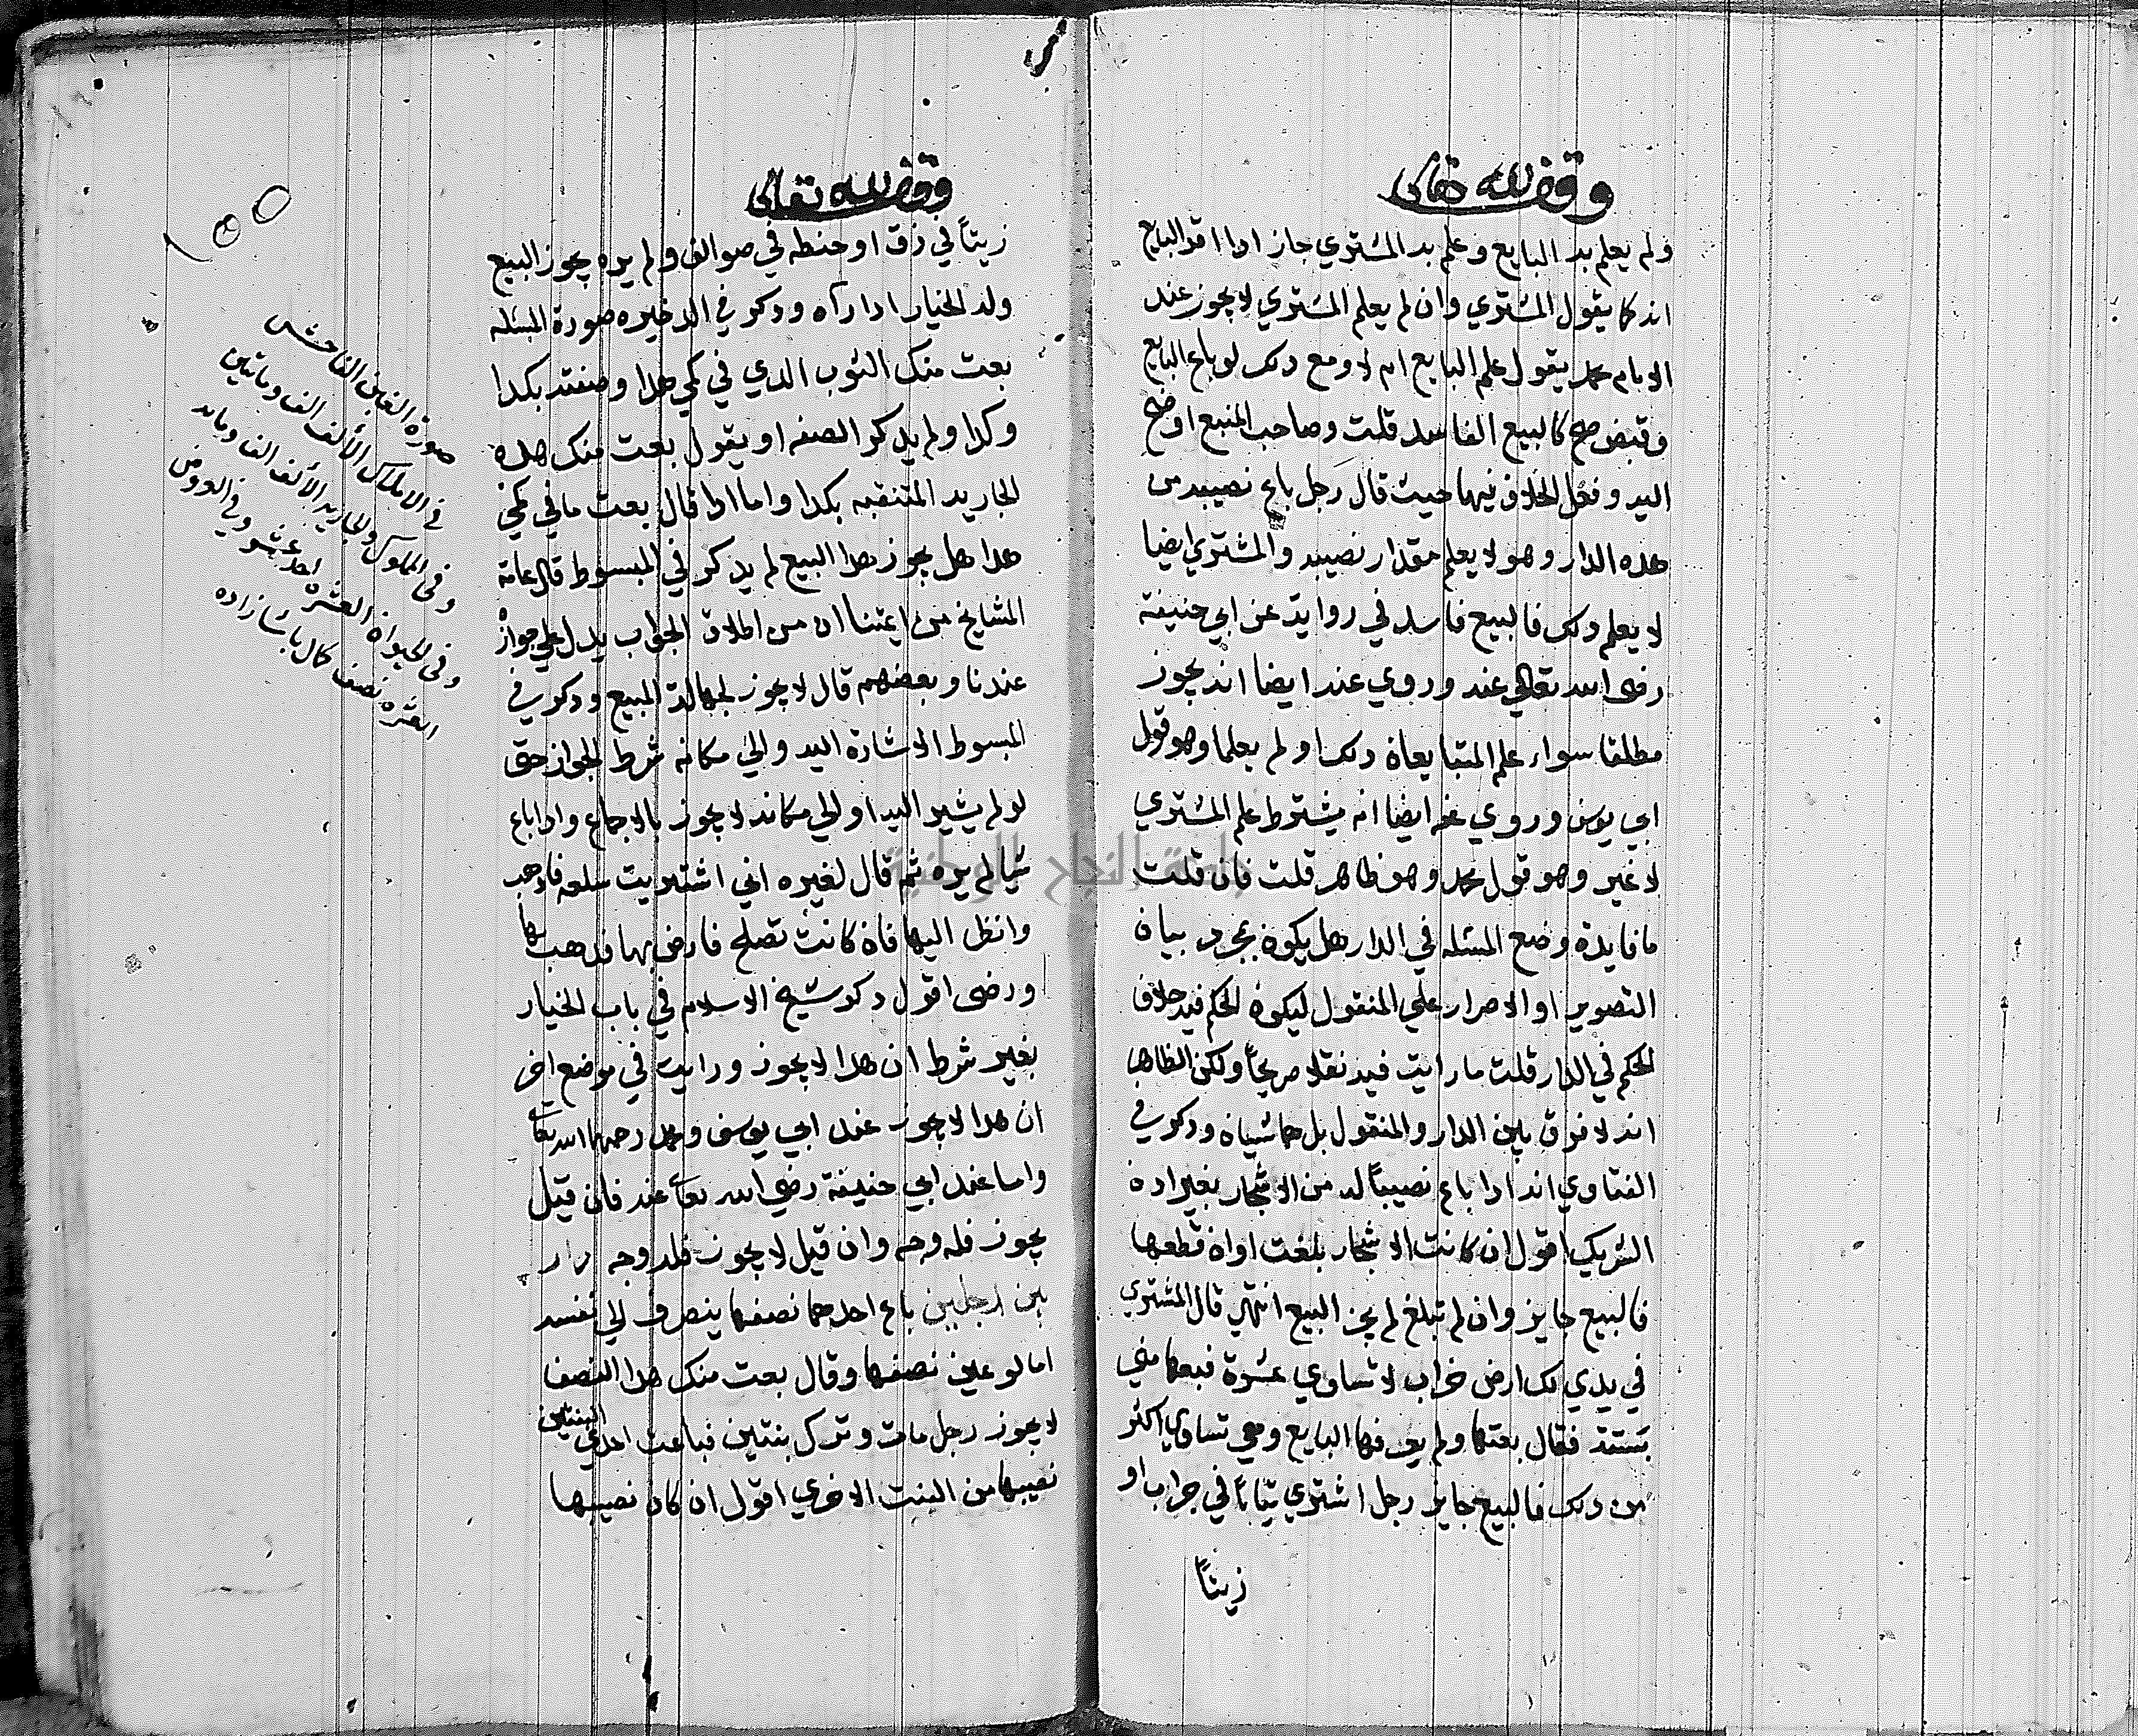 وقف لله تعالى
ولم يعلم به البايع وعلم به المشتري جاز اذا اقر البايع
انه كما يقول المشتري وان لم يعلم المشتري لا يجوز عند
الامام محمد يقول علم البايع ام لا ومع دلك لو باع البايع
وقبض صح كالبيع الفاسد قلت وصاحب المنبع اوضح
اليد ونقل الخلاف فيها حيث قال رجل باع نصيبه من
هده الدار وهو لا يعلم مقدار نصيبه والمشتري ايضا
لا يعلم دلك فالبيع فاسد في رواية عن ابي حنيفة
رضى الله تعالي عنه وروي عنه ايضا انه يجوز
مطلقا سواء علم المتبايعان دلك او لم يعلما وهو قول
ابي يوسف وروي عنه ايضا انه يشترط علم المشتري
لا غير وهو قول محمد وهو ظاهر قلت فان قلت
ما فايدة وضع المسئله في الدار هل يكون مجرد بيان
التصوير او الاصرار علي المنقول ليكون الحكم فيه خلاف
الحكم في الدار قلت ما رايت فيه نقلا صريحاً ولكن الظاهر
انه لا فرق بين الدار والمنقول بل هما سيان ودكر في
الفتاوي انه ادا باع نصيباً له من الاشجار بغير ادن
الشريك اقول ان كانت الاشجار بلغت اوان قطعها
فالبيع جايز وان لم تبلغ لم يجز البيع انتهي قال المشتري
في يدي لك ارض خراب لا تساوي عشرة فبعها مني
بستة فقال بعتها ولم يعرفها البايع وهي تساوي اكثر
من دلك فالبيع جايز رجل اشتري ثياباً في جراب او
زيتاً
وقف لله تعالى
زيتاً في زق او حنطه في صوالق ولم يره يجوز البيع
وله الخيار ادا رآه ودكر في الدخيره صورة المسئله
بعت منك الثوب الدي في كمي هدا وصفته بكدا
وكدا ولم يدكر الصفه او يقول بعت منك هده
الجارية المتنقبه بكدا واما ادا قال بعت ما في كمي
هدا هل يجوز هدا البيع لم يدكر في المبسوط قال عامة
المشايخ من ايمتنا ان من اطلاق الجواب يدل علي جوازه
عندنا وبعضهم قال لا يجوز لجهالة المبيع ودكر في
المبسوط الاشارة اليه والي مكانه شرط الجواز حتى
لو لم يشير اليه او الي مكانه لا يجوز بالاجماع وادا باع
شيا لم يره ثم قال لغيره اني اشتريت سلعه فادهب
وانظر اليها فان كانت تصلح فارض بها فدهب بها
ورضى اقول دكر شيخ الاسلام في باب الخيار
بغير شرط ان هدا لا يجوز ورايت في موضع اخر
ان هدا لا يجوز عند ابي يوسف ومحمد رحمهما الله تعا
واما عند ابي حنيفة رضي الله تعا عنه فان قيل
يجوز فله وجه وان قيل لا يجوز فله وجه دار
بين رجلين باع احدهما نصفها ينصرف الي نفسه
اما لو عين نصفها وقال بعت منك هدا النصف
لا يجوز رجل مات وترك بنتين فباعت احدي البنتين
نصيبها من البنت الاخري اقول ان كان نصيبها
صورة الغبن الفاحش
في الاملاك الألف الف وماتين
وفى المملوك والجارية الألف الف ومايه
وفى الحيوان العشره احد عشر وفى العروض
العشره نصف كمال باشا زاده